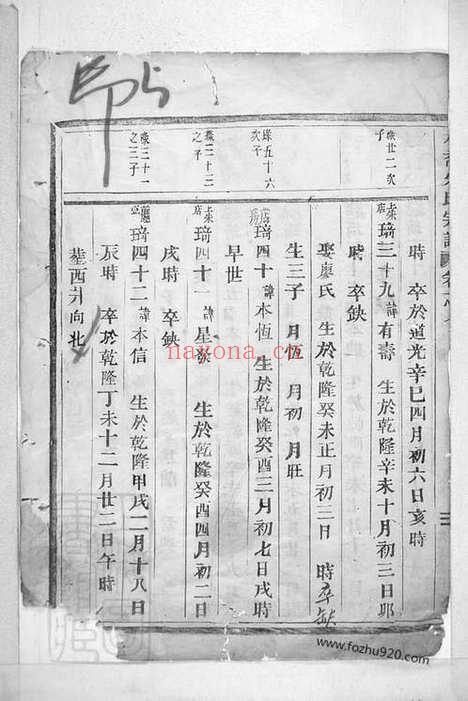 時 卒於道光辛巳四月初六日亥時
珠廿二次子
上來店 琦三十九 諱有壽 生於乾隆辛未十月初三日卯
時 卒缺
娶廖氏 生於乾隆癸未正月初三日 時 卒缺
生三子 月伍 月初 月旺
珠五十六次子
琦四十 諱本恆 生於乾隆癸酉三月初七日戌時
早世
珠三十三之子
上來店 琦四十一 諱星發 生於乾隆癸酉四月初二日
戌時 卒缺
珠三十一之三子
琦四十二 諱本信 生於乾隆甲戌二月十八日
辰時 卒於乾隆丁未十二月廿二日午時
葬西升向北
nayona.cn
www.fozhu920.com